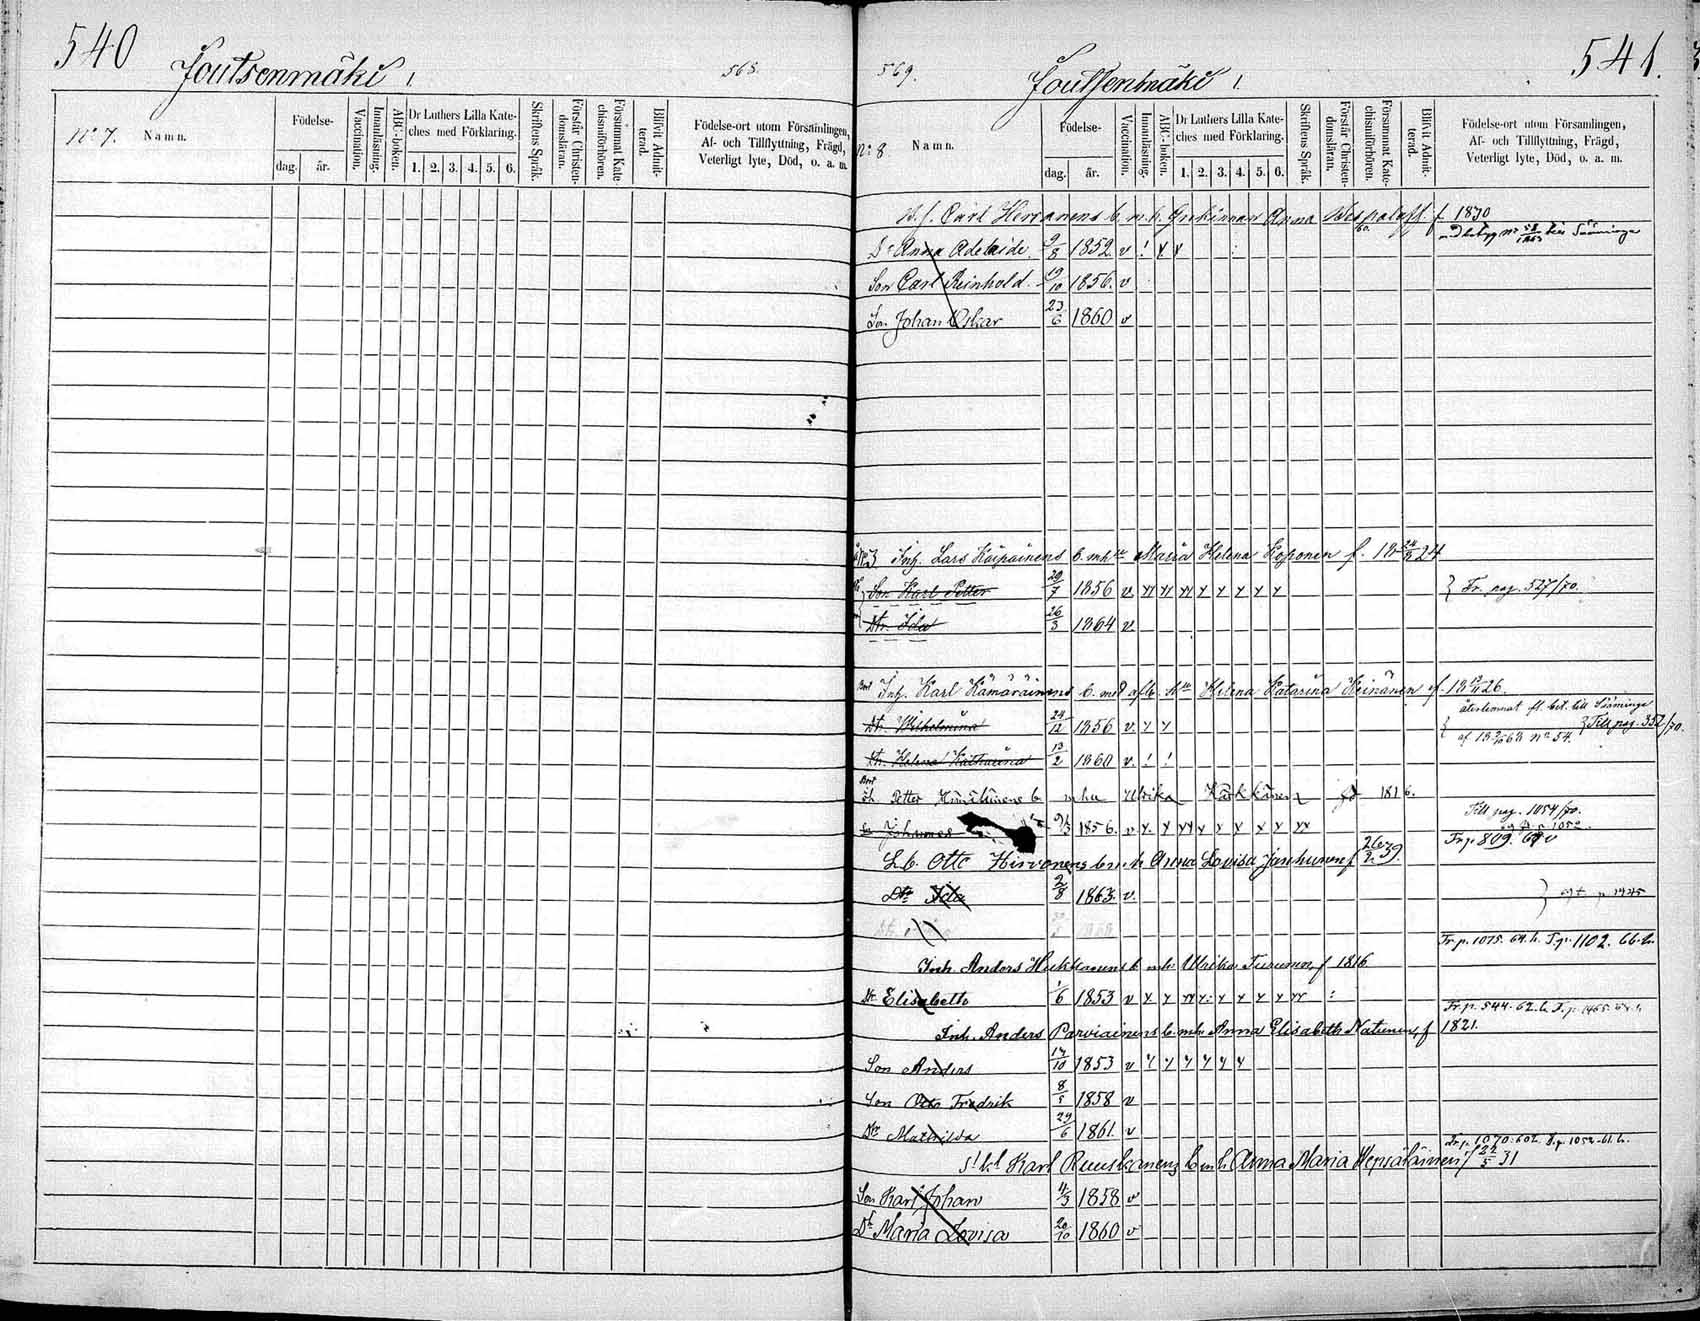 540
Joutsenmäki 1.
568.
No 7. Namn.
Födelse-
dag.
år.
Vaccination.
Innanläsning.
ABC-boken.
Dr Luthers Lilla Kate-
ches med Förklaring.
1. 2. 3. 4. 5. 6.
Skriftens Språk.
Förstår Christen-
domsläran.
Försummat Kate-
chismiförhören.
Blifvit Admit-
terad.
Födelse-ort utom Församlingen,
Af- och Tillflyttning, Frägd,
Veterligt lyte, Död, o. a. m.
541.
569.
Joutsenmäki 1.
No 8 Namn.
Födelse-
dag.
år.
Vaccination.
Innanläsning.
ABC-boken.
Dr Luthers Lilla Kate-
ches med Förklaring.
1. 2. 3. 4. 5. 6.
Skriftens Språk.
Förstår Christen-
domsläran.
Försummat Kate-
chismiförhören.
Blifvit Admit-
terad.
Födelse-ort utom Församlingen,
Af- och Tillflyttning, Frägd,
Veterligt lyte, Död, o. a. m.
Carl b. m. h. Anna f. 1830
Dr Anna Adelaide 9/8 1852 v
Son Carl Reinhold 19/10 1856. v
Son Johan Oskar 23/6 1860 v
Inh. Lars Kaipainens b. m. h. Maria Helena Koponen f. 18 24/5 24
Son Karl Petter 29/7 1856 v. Fr. pag. 527/70.
Dtr. Ida 26/3 1864 v.
Inh. Karl Kämäräinens b. med Helena Katarina Keinänen f. 18 26.
återlemnat fl. bet. till Sääminge
Dt. Wilhelmina 24/12 1856 v. Till pag. 352/70.
No 54.
Dt. Helena Katharina 13/2 1860 v.
Petter b mhu Ulrika Kärkkäinen 1816.
Till pag. 1054/70.
Johannes 1856. v
Fr p 809. 67 v
L. b. Otto Hirvonens b m h Anna Lovisa Janhunen f 26/2 39.
Dtr Ida 2/8 1863. v.
Fr. p. 1075. 64. h. T. p. 1102. 66. h.
Inh. Anders b. mh. Ulrika Turunen, f 1816
Dr Elisabeth 1/6 1853 v
Fr. p. 544. 62. h. T. p. 1465.
Inh. Anders Parviainens b. mh. Anna Elisabeth Natunen, f 1821.
Son Anders 17/10 1853 v
Son Otto Fredrik 8/5 1858 v
Dtr Mathilda 29/6 1861. v
Fr. p. 1070. 60 h. T. p. 1052. 61. h.
Karl Ruuskanens b m h Anna Maria Hepsäläinen f 22/5 31
Son Karl Johan 11/3 1858 v
Dr Maria Lovisa 20/10 1860 v